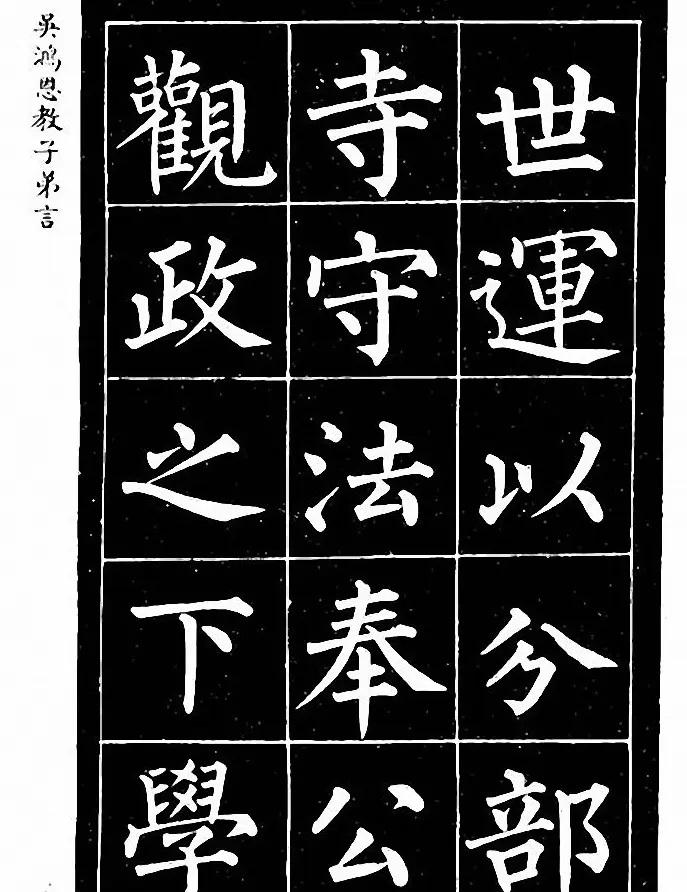 世運以分部
寺守法奉公
觀政之下學
吳鴻恩教子弟言